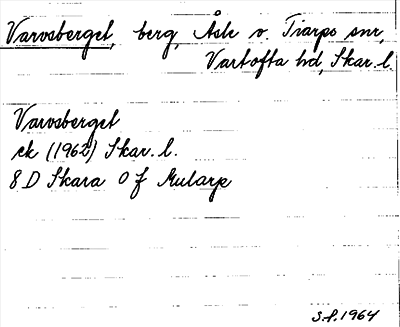 Varvsberget, berg, Åsle o. Tiarps snr,
Vartofta hd, Skar. l.
Varvsberget
ek (1962) Skar. l.
8 D Skara 0 f Mularp
S.F. 1964